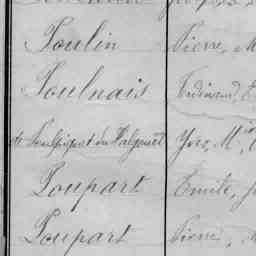 Poulin Pierre, M
Poulnais Ferdinand, E
de Poulpiquet du Halgouët Yves, M
Poupart Emile, J
Poupart Pierre,